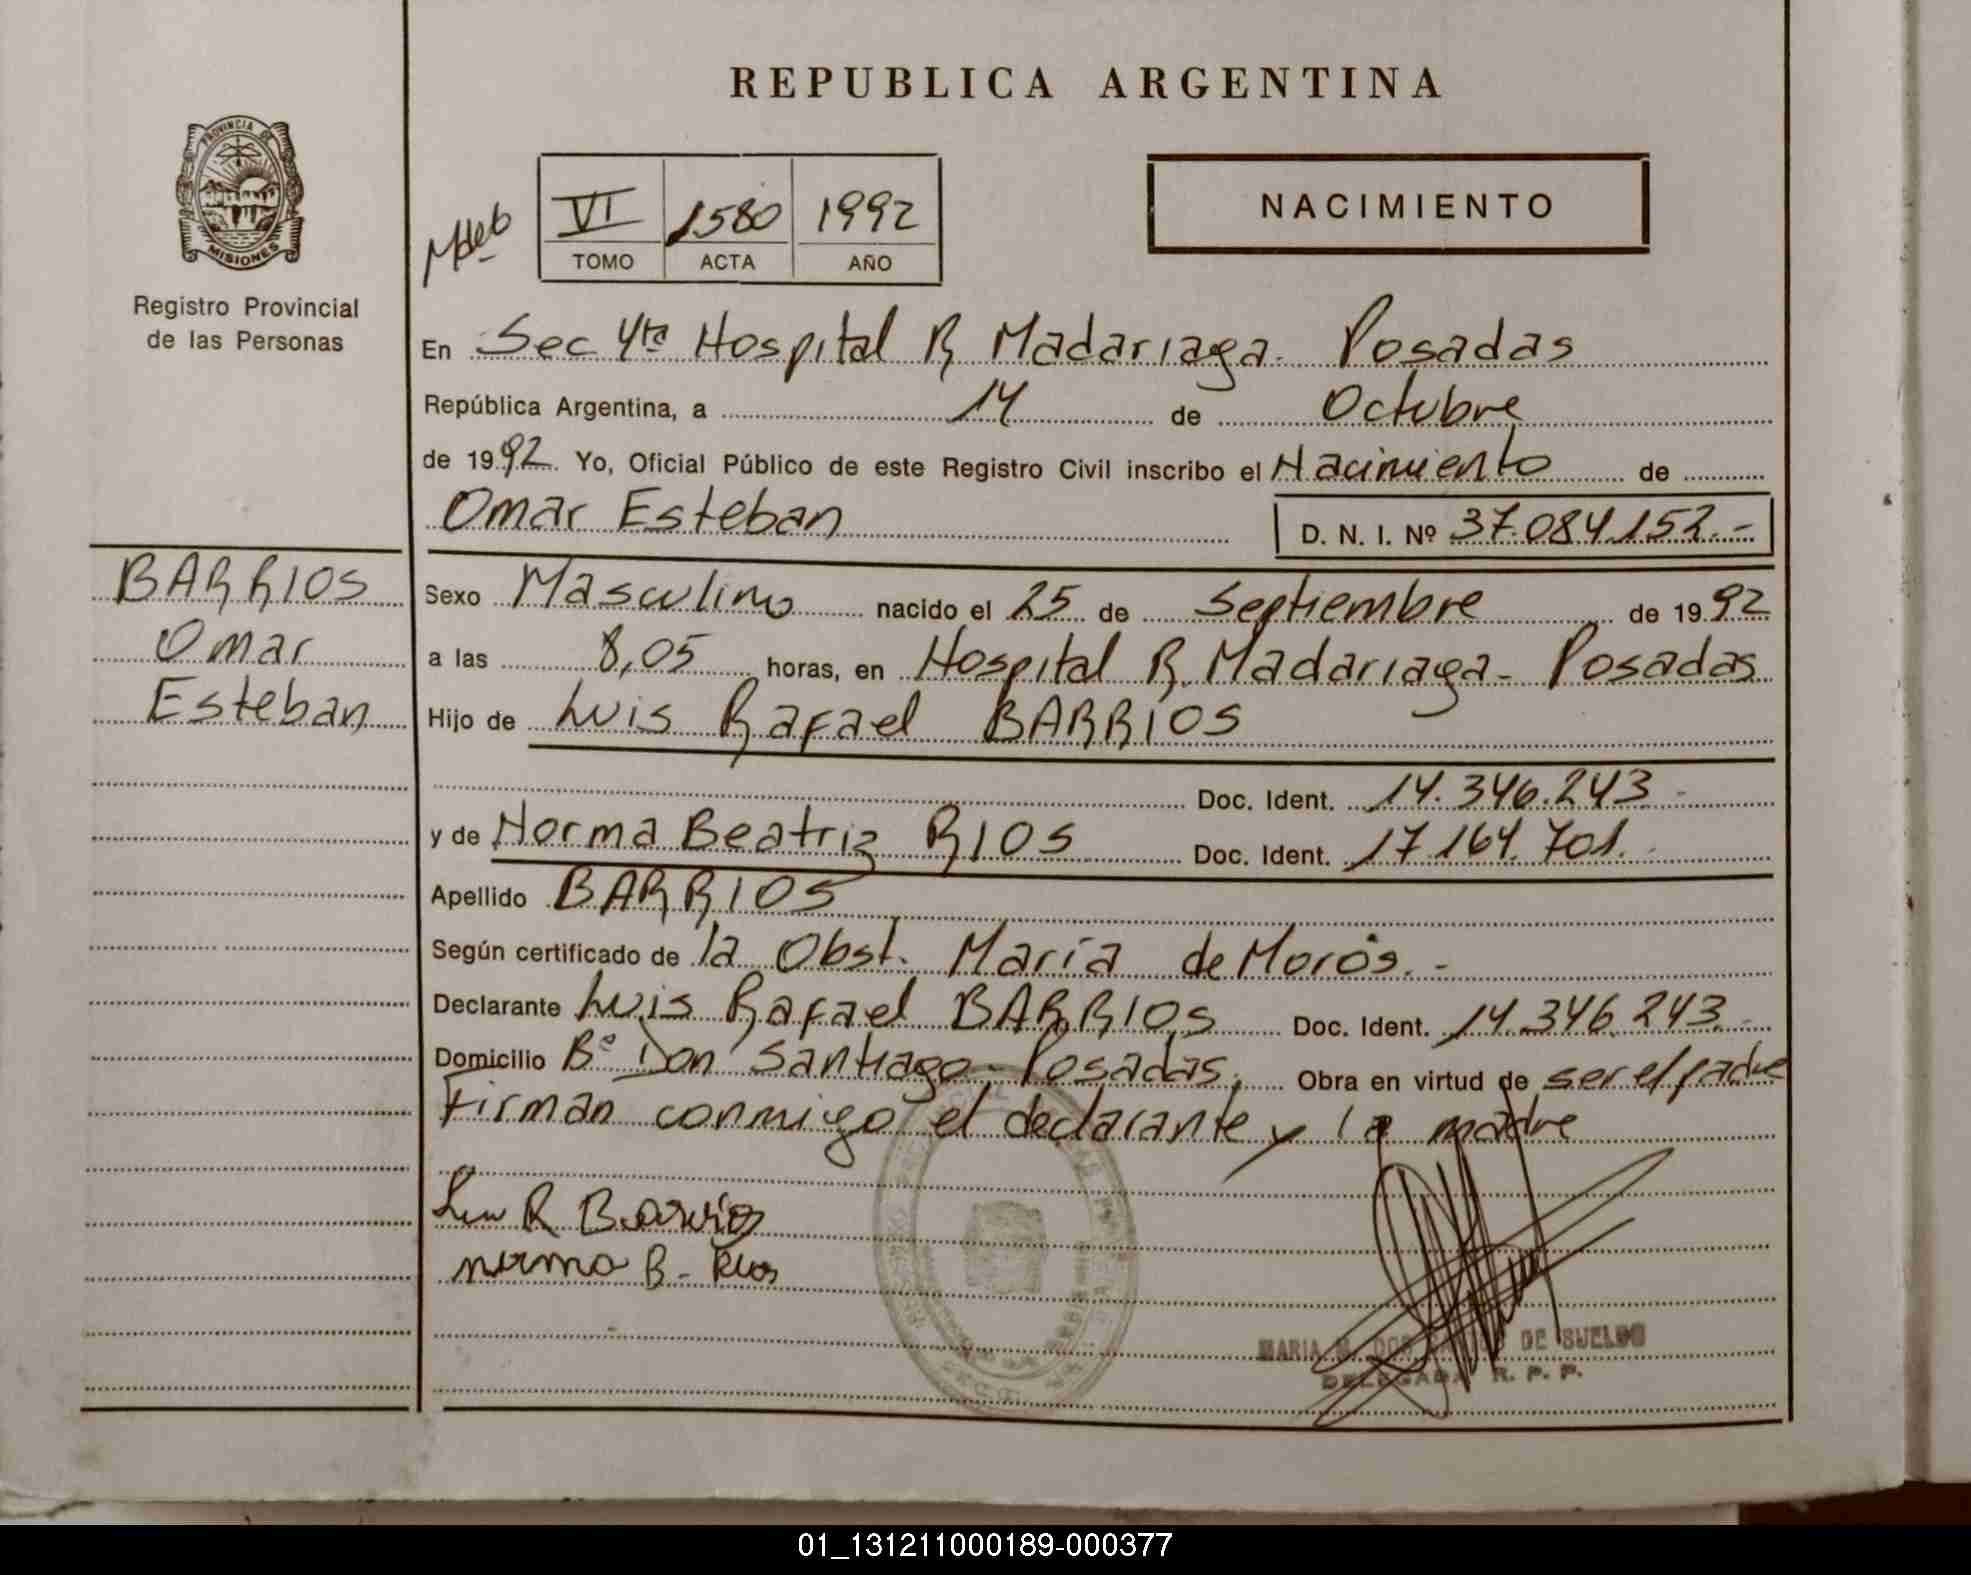 REPUBLICA ARGENTINA
PROVINCIA DE
MISIONES
Registro Provincial
de las Personas
VI 1580 1992
TOMO ACTA AÑO
NACIMIENTO
En Sec 4ta Hospital R Madariaga - Posadas
República Argentina, a 14 de Octubre
de 1992. Yo, Oficial Público de este Registro Civil inscribo el Nacimiento de
Omar Esteban D. N. I. Nº 37.084.152.-
BARRIOS
Omar
Esteban
Sexo Masculino nacido el 25 de Septiembre de 1992
a las 8,05 horas, en Hospital R. Madariaga - Posadas
Hijo de Luis Rafael BARRIOS
Doc. Ident. 14.346.243 -
y de Norma Beatriz RIOS Doc. Ident. 17.164.701.-
Apellido BARRIOS
Según certificado de la Obst. María de Morós.-
Declarante Luis Rafael BARRIOS Doc. Ident. 14.346.243.-
Domicilio Bº Don Santiago - Posadas, Obra en virtud de ser el padre
Firman conmigo el declarante y la madre
R Barrios
norma B- Rios
MARIA DE SUELDO
DELEGADA R. P. P.
01_131211000189-000377